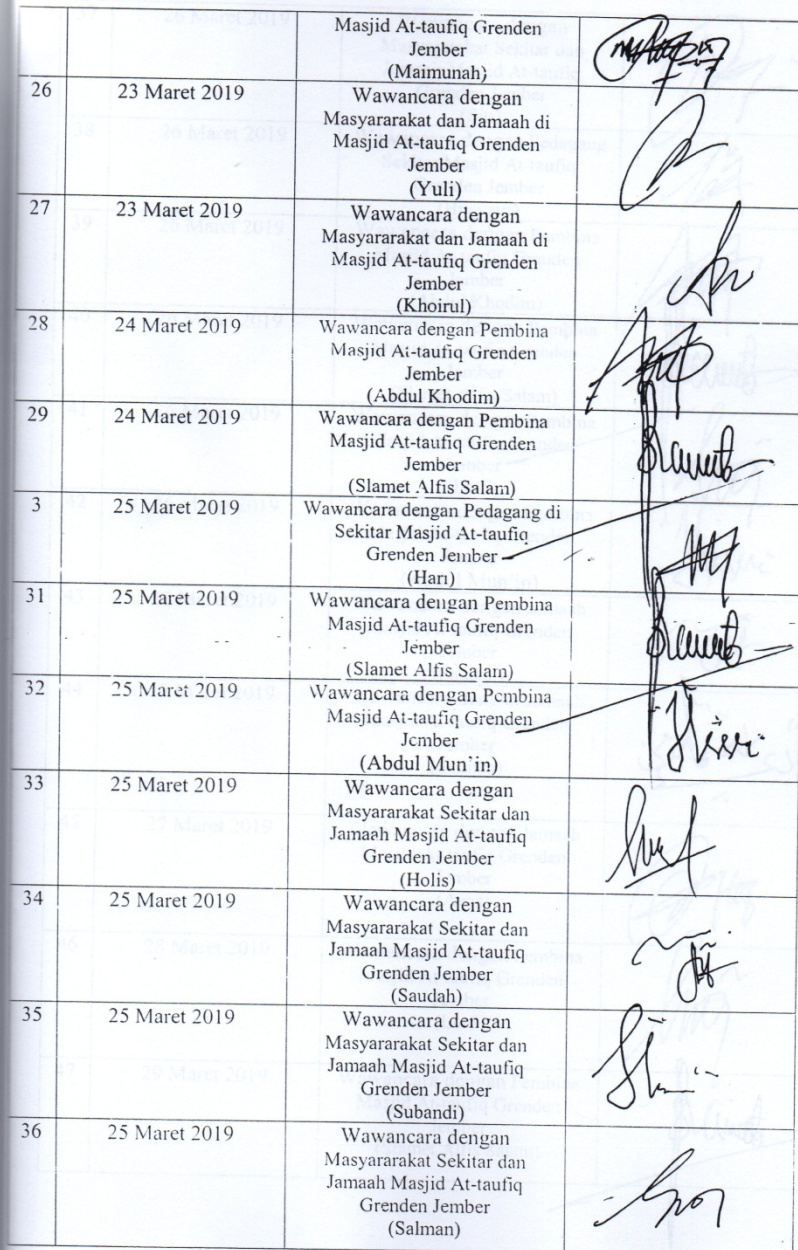 Masjid At-taufiq Grenden
Jember
(Maimunah)
26 23 Maret 2019 Wawancara dengan
Masyararakat dan Jamaah di
Masjid At-taufiq Grenden
Jember
(Yuli)
27 23 Maret 2019 Wawancara dengan
Masyararakat dan Jamaah di
Masjid At-taufiq Grenden
Jember
(Khoirul)
28 24 Maret 2019 Wawancara dengan Pembina
Masjid At-taufiq Grenden
Jember
(Abdul Khodim)
29 24 Maret 2019 Wawancara dengan Pembina
Masjid At-taufiq Grenden
Jember
(Slamet Alfis Salam)
3 25 Maret 2019 Wawancara dengan Pedagang di
Sekitar Masjid At-taufiq
Grenden Jember
(Hari)
31 25 Maret 2019 Wawancara dengan Pembina
Masjid At-taufiq Grenden
Jember
(Slamet Alfis Salam)
32 25 Maret 2019 Wawancara dengan Pembina
Masjid At-taufiq Grenden
Jember
(Abdul Mun'in)
33 25 Maret 2019 Wawancara dengan
Masyararakat Sekitar dan
Jamaah Masjid At-taufiq
Grenden Jember
(Holis)
34 25 Maret 2019 Wawancara dengan
Masyararakat Sekitar dan
Jamaah Masjid At-taufiq
Grenden Jember
(Saudah)
35 25 Maret 2019 Wawancara dengan
Masyararakat Sekitar dan
Jamaah Masjid At-taufiq
Grenden Jember
(Subandi)
36 25 Maret 2019 Wawancara dengan
Masyararakat Sekitar dan
Jamaah Masjid At-taufiq
Grenden Jember
(Salman)